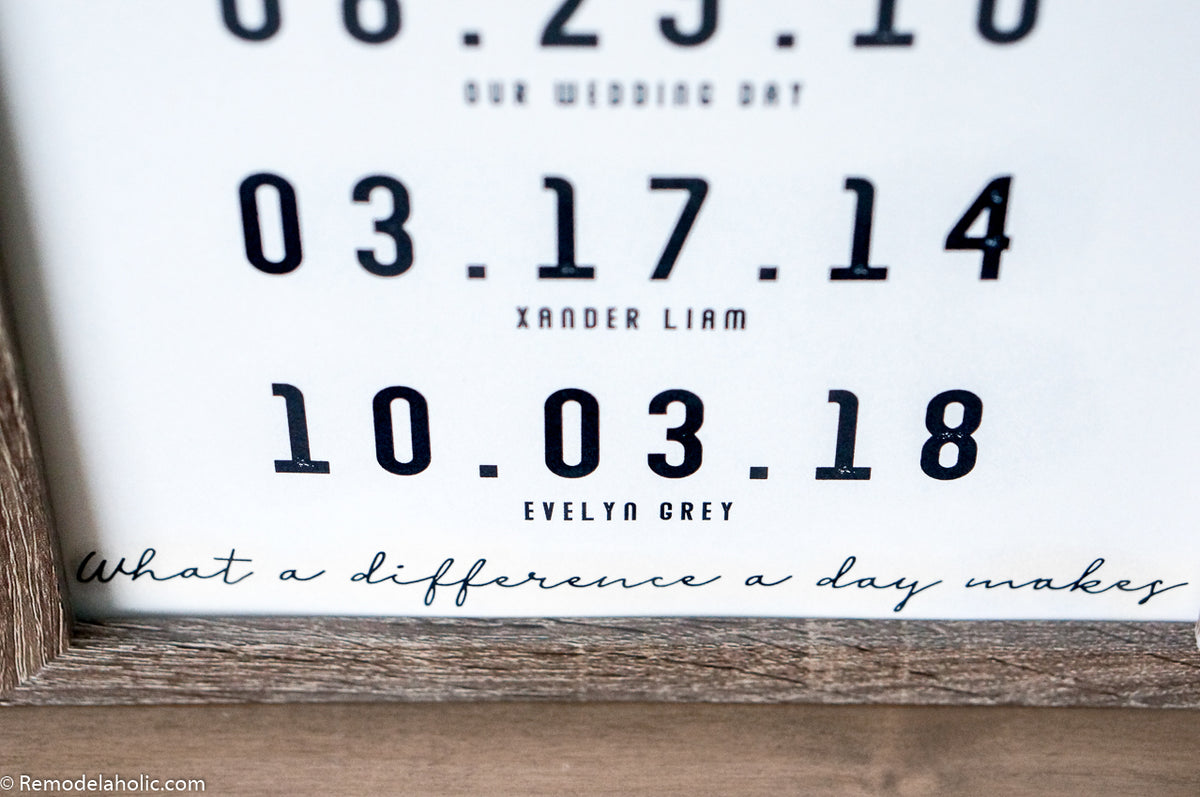 OUR WEDDING DAY
03.17.14
XANDER LIAM
10.03.18
EVELYN GREY
What a difference a day makes
© Remodelaholic.com